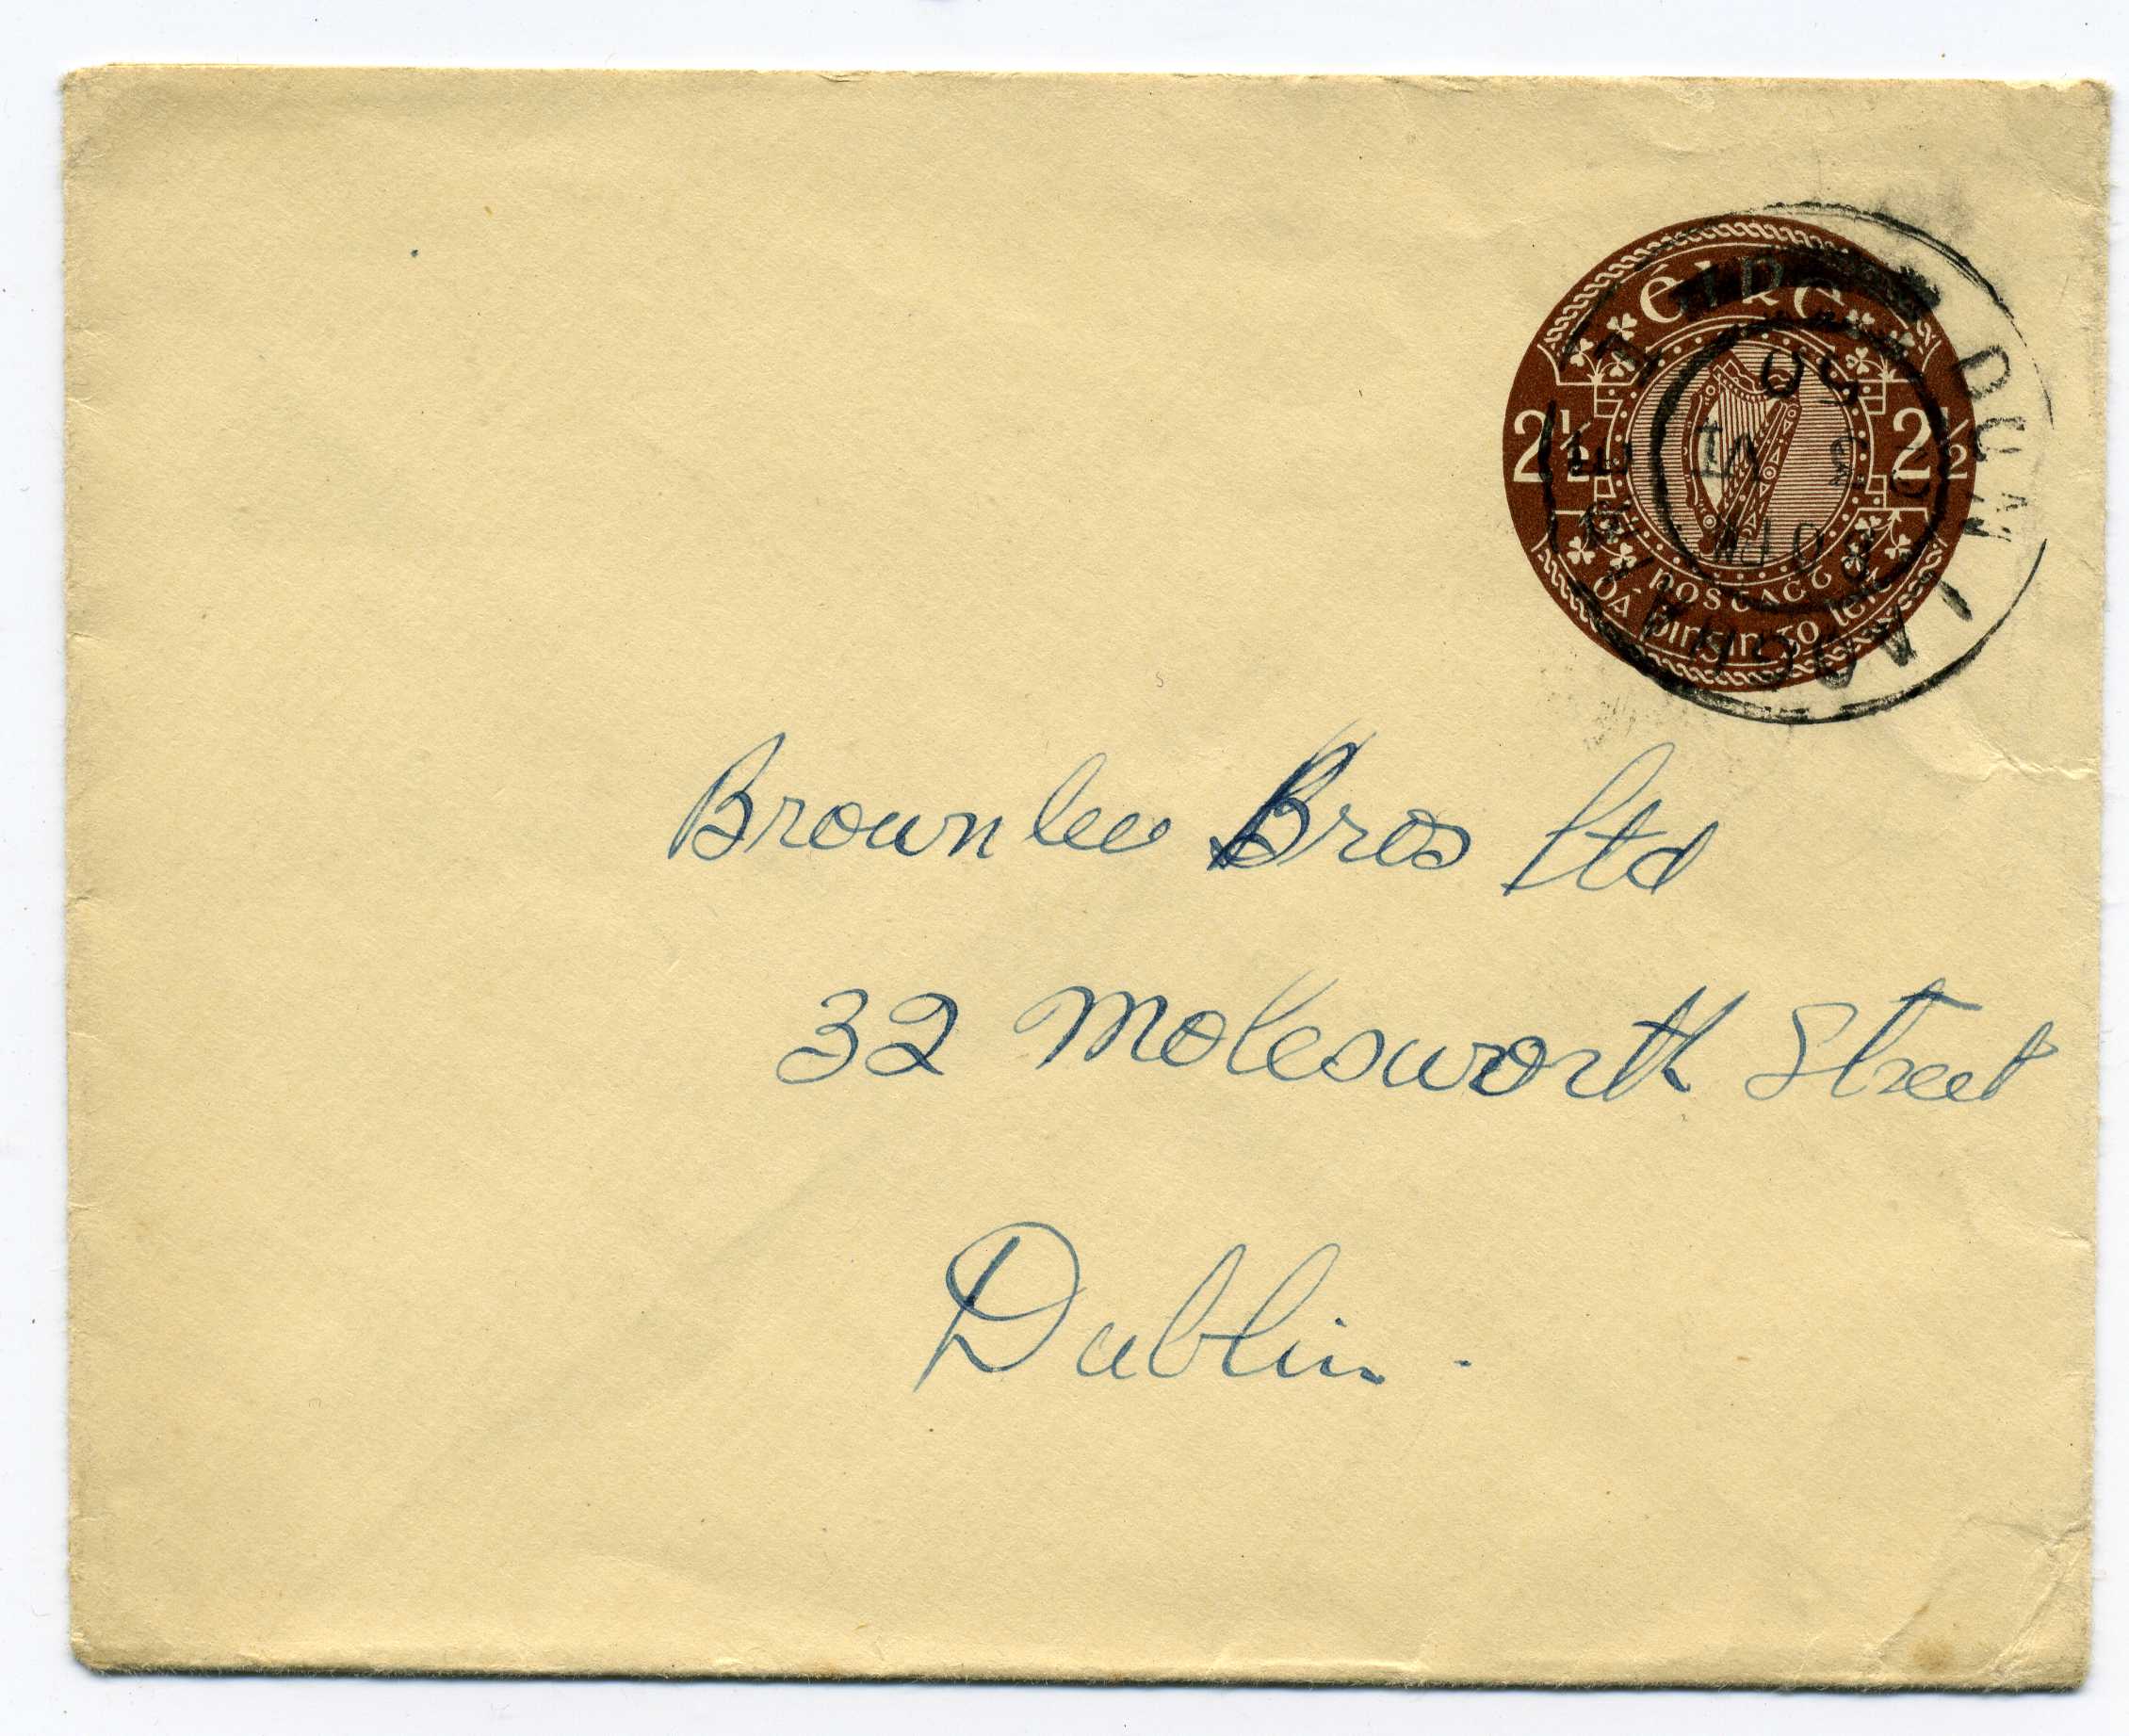 éire
2½ 2½
postas
dá pingin go leit
DUN LAOGHAIRE
50
VI
Brownlee Bros Ltd
32 Molesworth Street
Dublin.